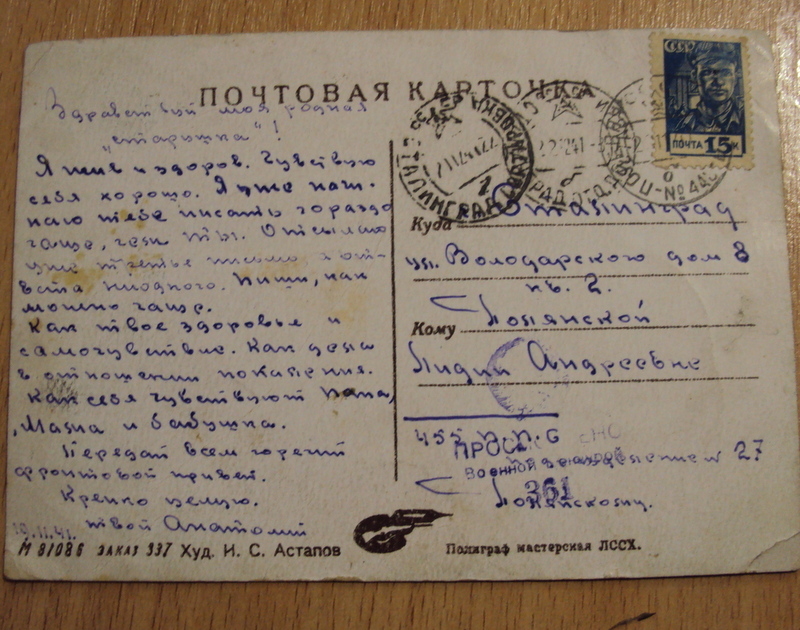 ПОЧТОВАЯ КАРТОЧКА
СССР
ПОЧТА 15 К
Здравствуй моя родная
„старушка"!
Я жив и здоров. Чувствую
себя хорошо. Я уже начи-
наю тебе писать гораздо
чаще, чем ты. Отсылаю
уже третье письмо, а от-
вета ни одного. Пиши, как
можно чаще.
Как твое здоровье и
самочувствие. Как дела
в отношении
Как себя чувствуют папа,
Мама и бабушка.
Передай всем горячий
фронтовой привет.
Крепко целую.
твой Анатолий
19.11.41.
Куда Сталинград
ул. Володарского дом 8
кв. 2.
Кому
Лидии Андреевне
455 п.п.с
ПРОСМ
Военной 27
361
СТАЛИНГРАД
М 81086 ЗАКАЗ 337 Худ. И. С. Астапов
Полиграф мастерская ЛССХ.